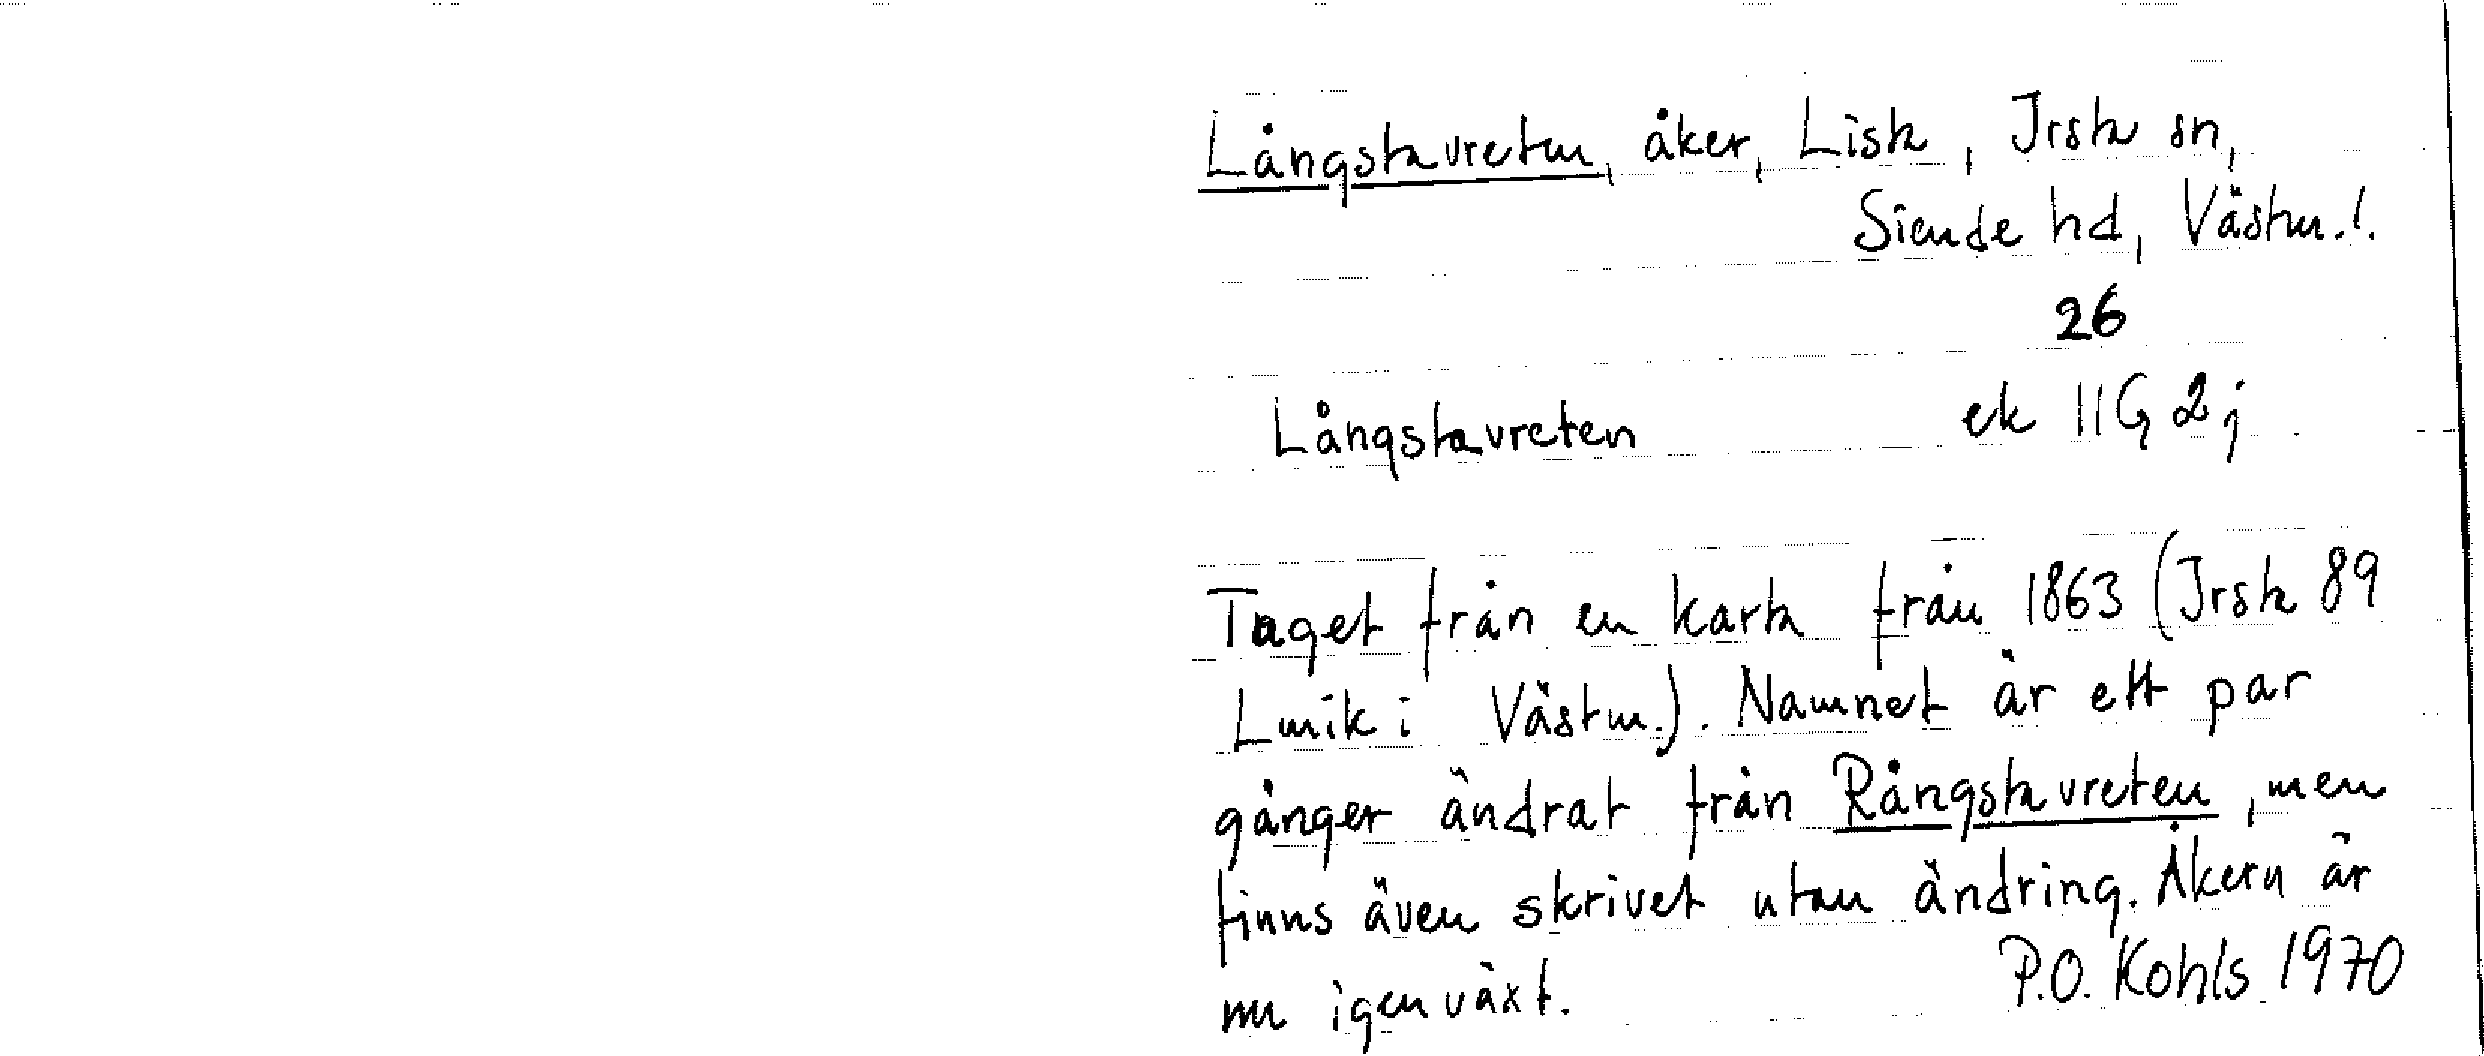 Långstavreten, åker, Lista, Irsta sn,
Siende hd, Västm. l.
26
Långstavreten ek 11G 2j
Taget från en karta från 1863 (Irsta 89
Lmik i Västm.). Namnet är ett par
gånger ändrat från Rångstavreten, men
finns även skrivet utan ändring. Åkern är
nu igenväxt. P.O. Kohls 1970